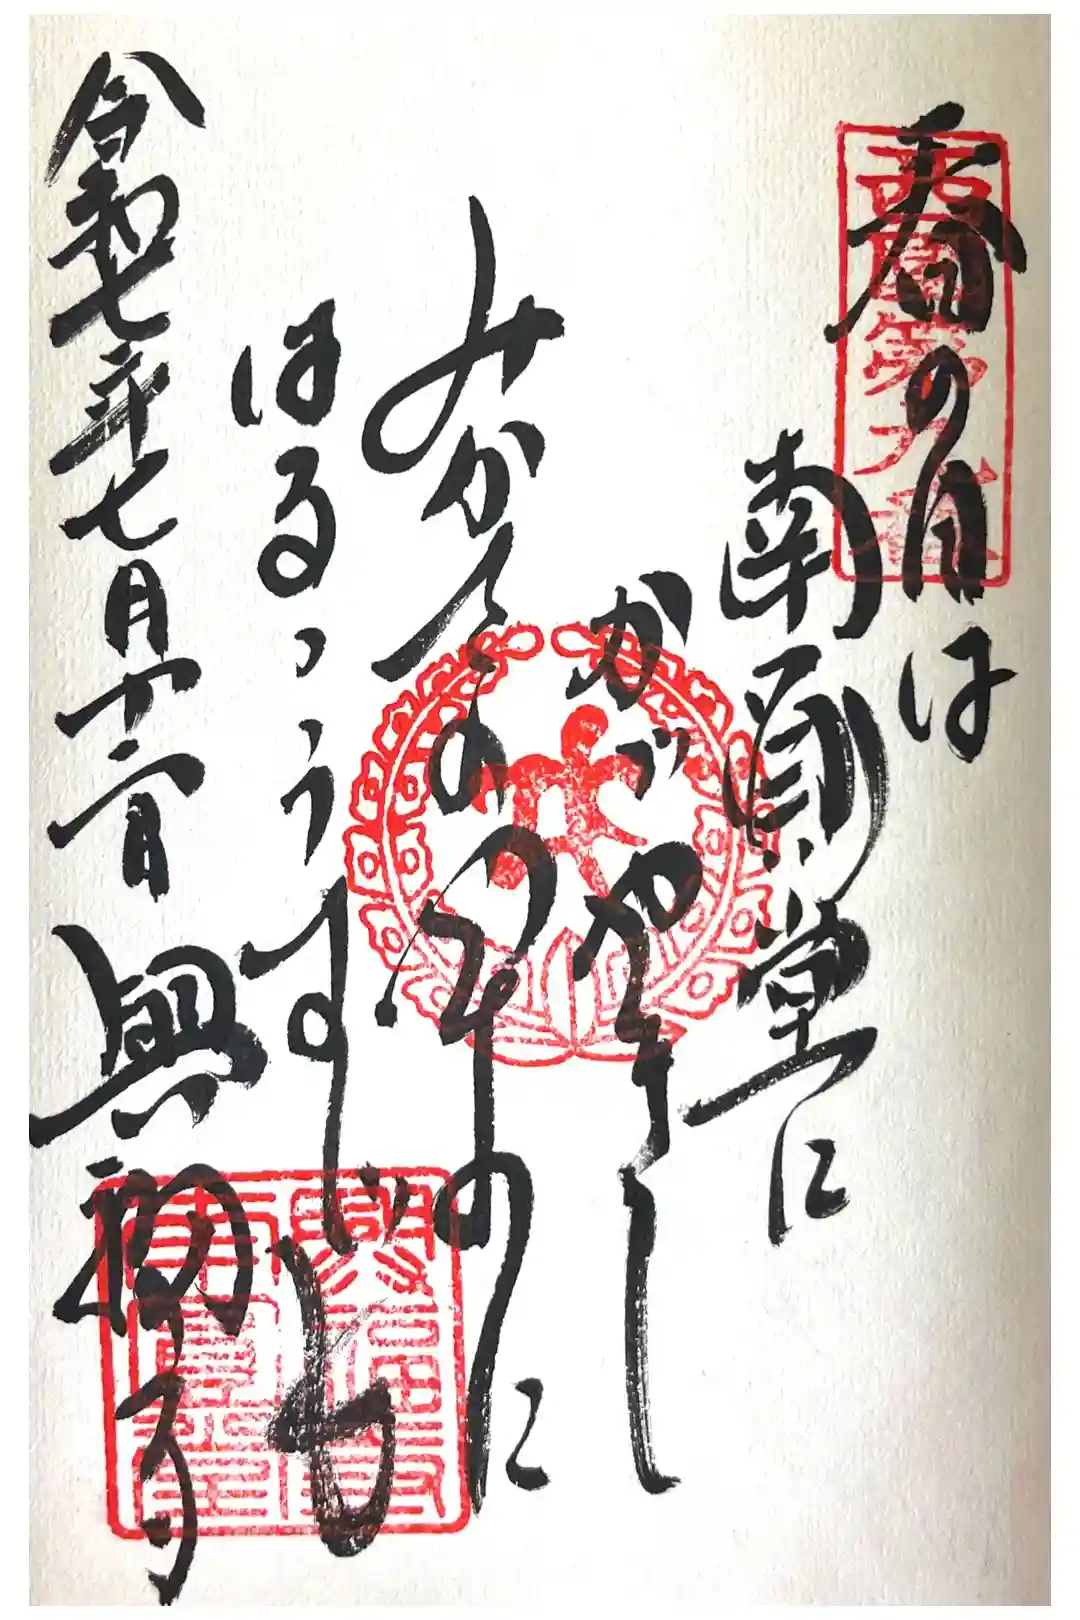 西國第九番
春の日は
南圓堂に
かゞやきて
みかさのやまに
はるゝうすぐも
令和七年七月十二日 興福寺
興福寺
南圓堂